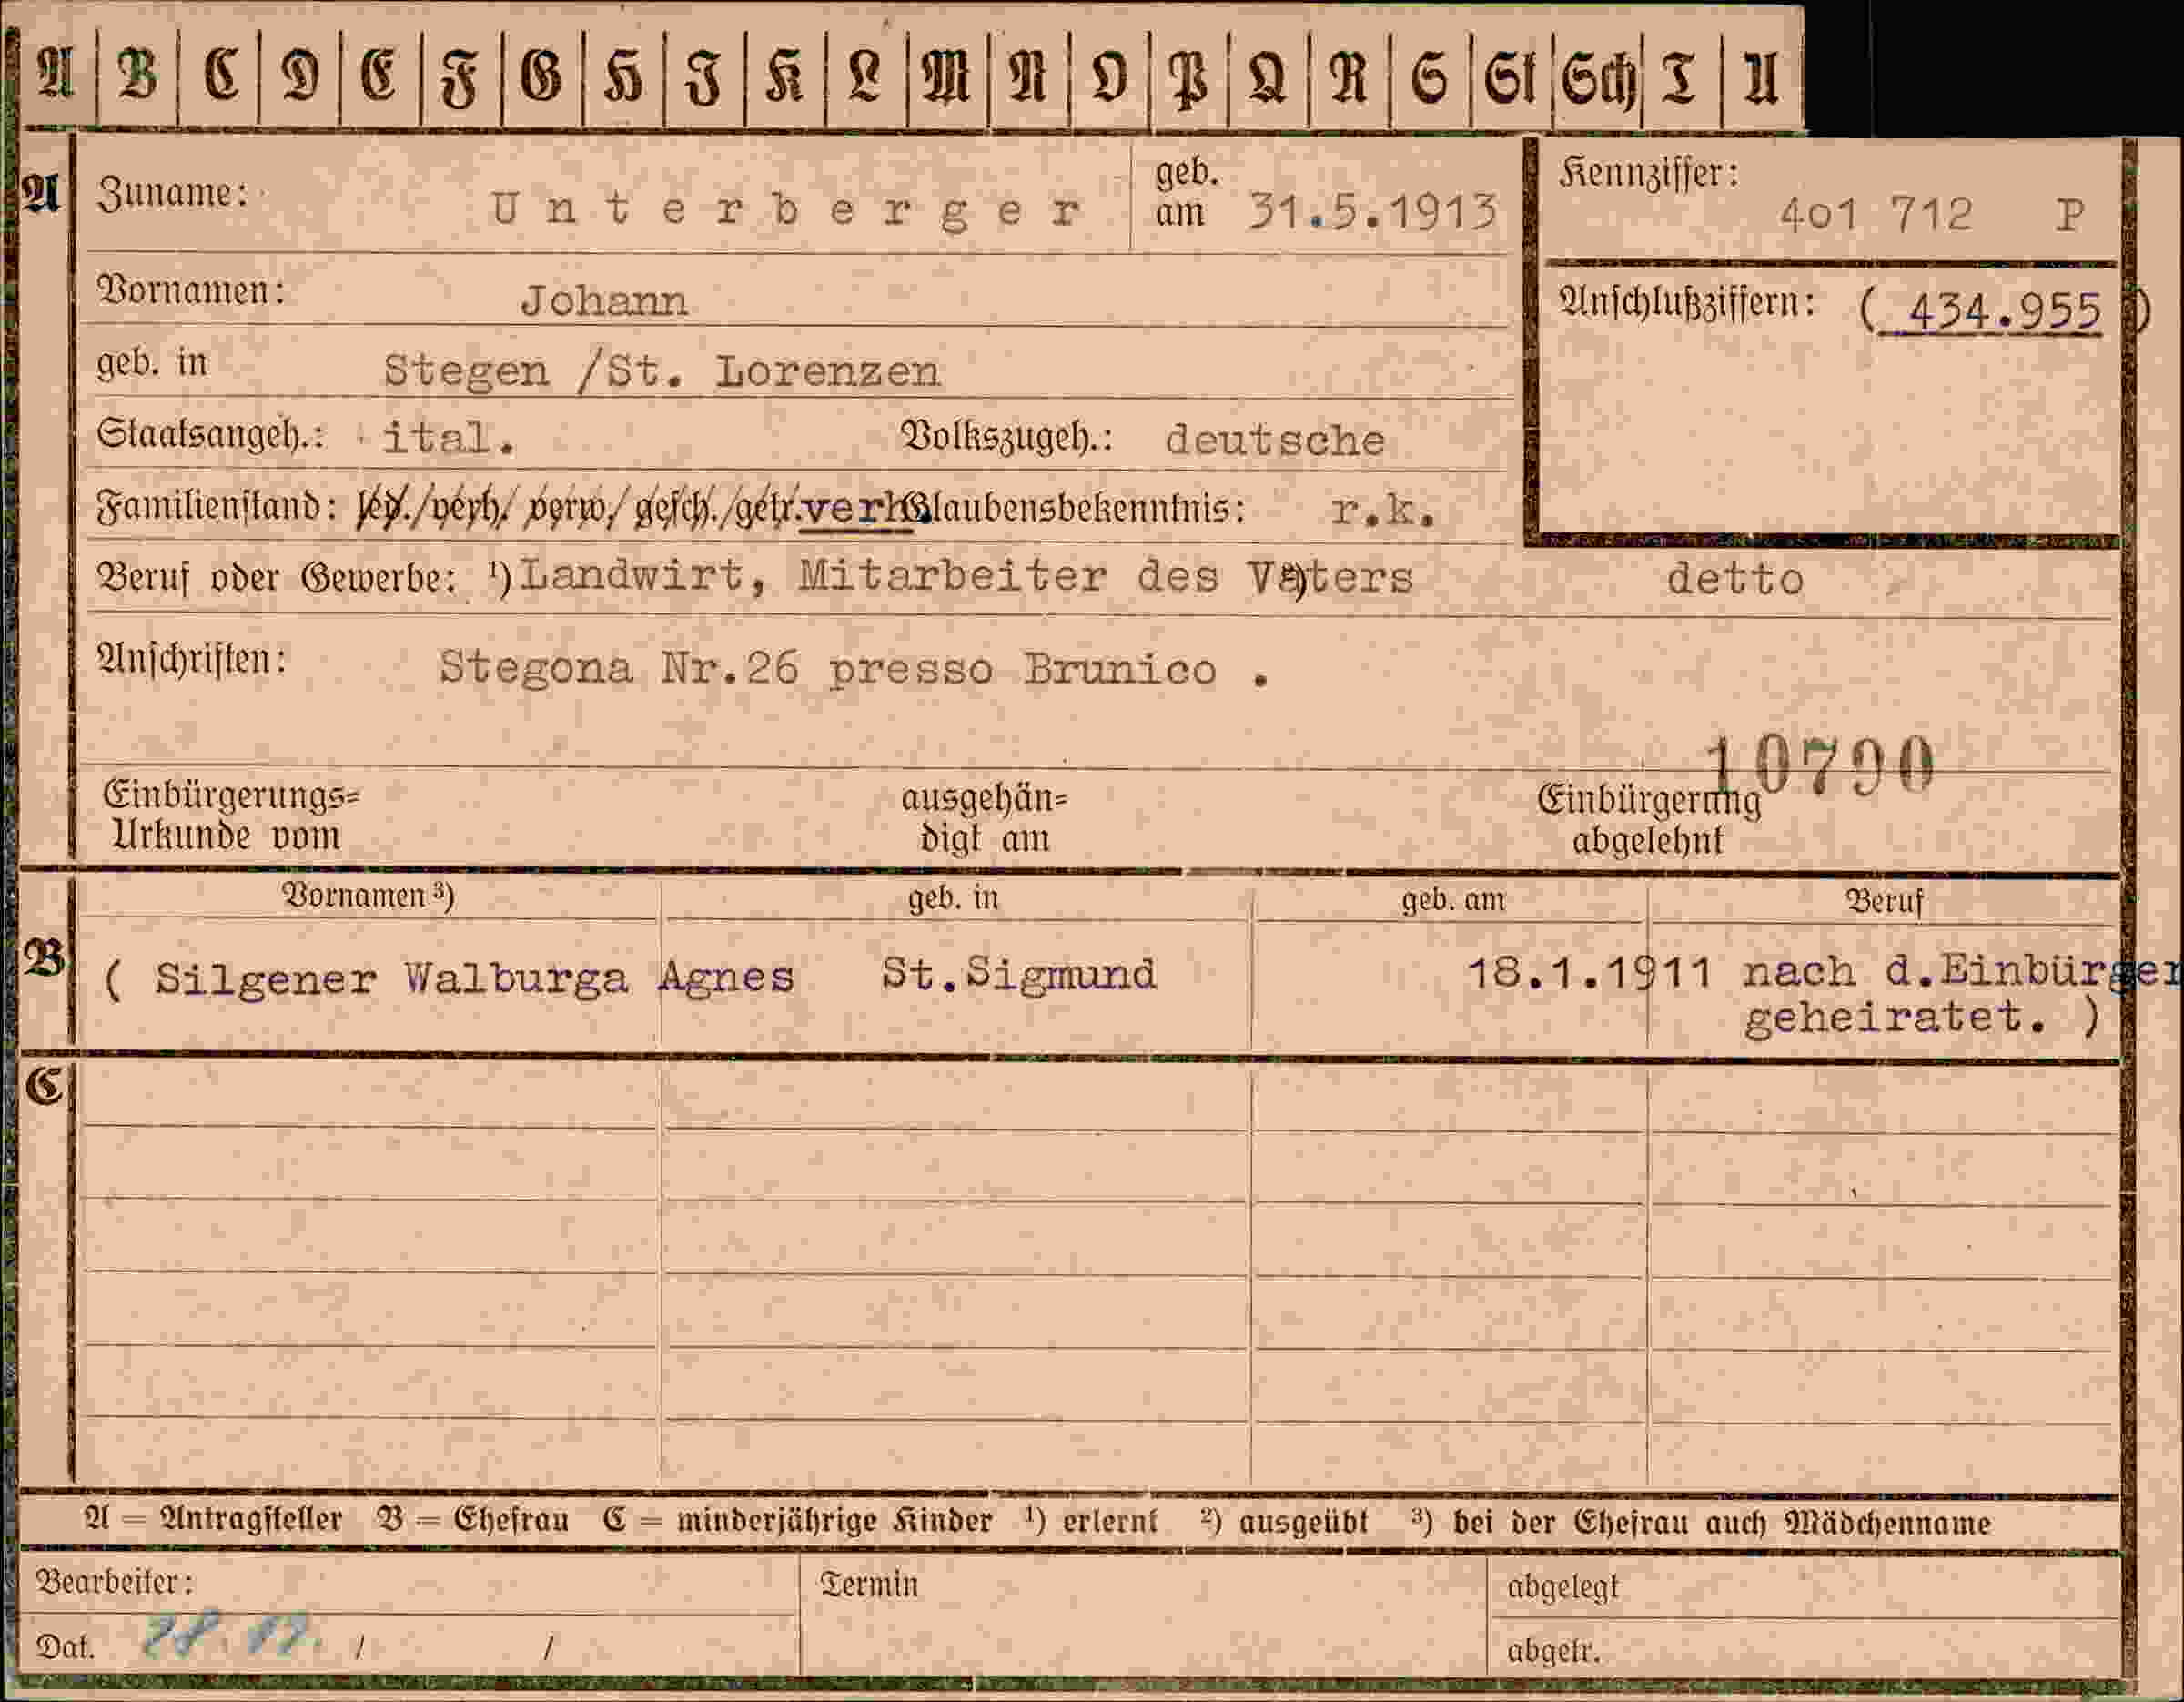 A B C D E F G H I K L M N O P Q R S St Sch T U
A Zuname: Unterberger geb. am 31.5.1913 Kennziffer: 401 712 P
Vornamen: Johann Anschlußziffern: ( 434.955 )
geb. in Stegen /St. Lorenzen
Staatsangeh.: ital. Volkszugeh.: deutsche
Familienstand: led./verh/ verw/ gesch./getr. verh Glaubensbekenntnis: r.k.
Beruf oder Gewerbe: ¹) Landwirt, Mitarbeiter des Vaters ²) detto
Anschriften: Stegona Nr.26 presso Brunico .
10790
Einbürgerungs= ausgehän= Einbürgerung
Urkunde vom digt am abgelehnt
Vornamen ³) geb. in geb. am Beruf
B ( Silgener Walburga Agnes St.Sigmund 18.1.1911 nach d.Einbürger
geheiratet. )
C
A = Antragsteller B = Ehefrau C = minderjährige Kinder ¹) erlernt ²) ausgeübt ³) bei der Ehefrau auch Mädchenname
Bearbeiter: Termin abgelegt
Dat. / / abgetr.